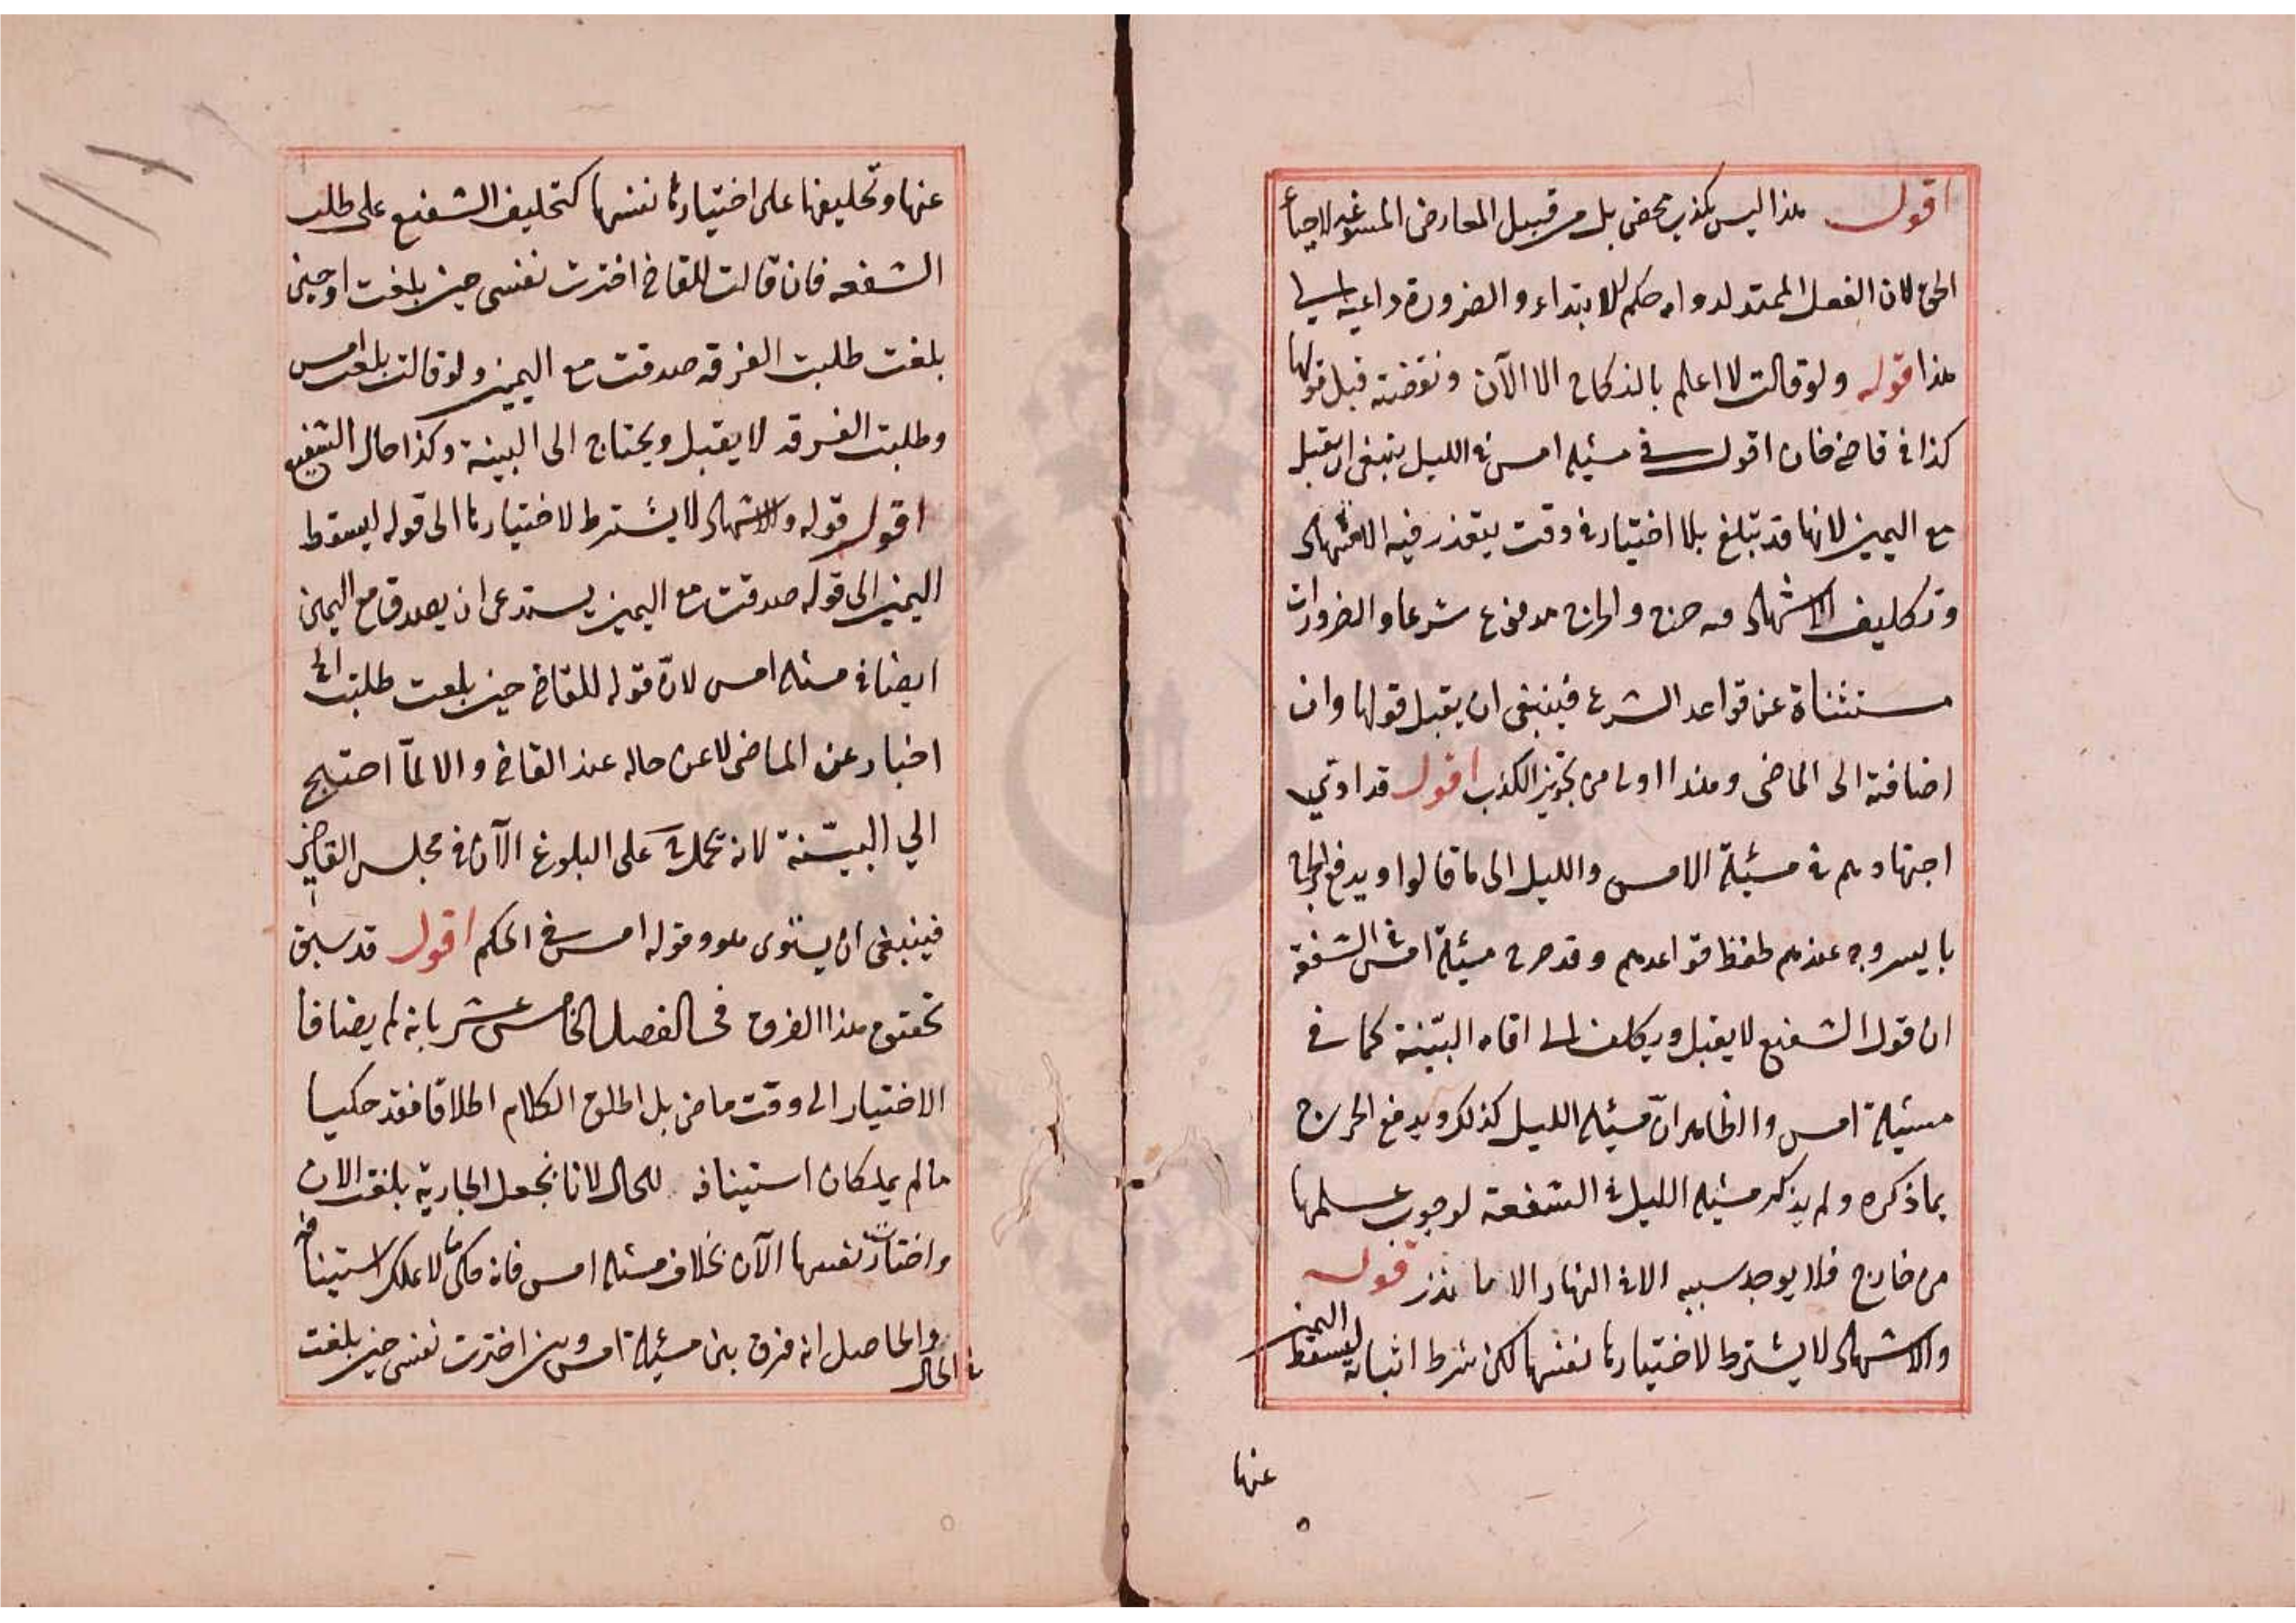 اقول هذا ليس بكذب محض بل من قبيل المعارض المسوغه لاحيأ
الحق لان الفعل الممتد لدوامه حكم الابتداء والضرورة داعية الى
هذا قوله ولو قالت لا اعلم بالنكاح الا الآن ونقضته قبل قولها
كذا في قاضيخان اقول في مسئلة امس في الليل ينبغي ان يقبل
مع اليمين لانها قد تبلغ بلا اختيار في وقت يتعذر فيه الاشهاد
وتكليف الاشهاد فيه حرج والحرج مدفوع شرعا والضرورات
مستثناة عن قواعد الشرع فينبغي ان يقبل قولها وان
اضافته الى الماضي وهذا اولى من تجويز الكذب اقول قد ادى
اجتهادهم في مسئلة الامس والليل الى ما قالوا ويدفع الحرج
بايسر وجه عندهم لحفظ قواعدهم وقد صرح مسئلة امس في الشفعة
ان قول الشفيع لا يقبل ويكلف الى اقامة البيّنة كما في
مسئلة امس والظاهر انّ مسئلة الليل كذلك ويدفع الحرج
بما ذكره ولم يذكر مسئلة الليل في الشفعة لوجوب علمها
من خارج فلا يوجد سببه الا في النهار الا ما نذر قوله
والاشهاد لا يشترط لاختيارها نفسها لكن شرط اثباته ليسقط اليمين
عنها
عنها وتحليفها على اختيارها نفسها كتحليف الشفيع على طلب
الشفعه فان قالت للقاضي اخترت نفسي حين بلغت او حين
بلغت طلبت الفرقه صدقت مع اليمين ولو قالت بلغت امس
وطلبت الفرقه لا يقبل ويحتاج الى البينة وكذا حال الشفيع
اقول قوله والاشهاد لا يشترط لاختيارها الى قوله ليسقط
اليمين الى قوله صدقت مع اليمين يستدعى ان يصدق مع اليمين
ايضا في مسئلة امس لانّ قوله للقاضي حين بلغت طلبت الخ
اخبار عن الماضي لا عن حاله عند القاضي والا لمّا احتيج
الي البيّنة لانه يحمل على البلوغ الآن في مجلس القاضي
فينبغي ان يستوى هو وقوله امس في الحكم اقول قد سبق
تحقيق هذا الفرق في الفصل الخامس عشر بانه لم يضافا
الاختيار الى وقت ماض بل اطلق الكلام اطلاقا فقد حكيا
مالم يملكان استينافه للحال لانا نجعل الجارية بلغت الان
واختارت نفسها الآن بخلاف مسئلة امس فانه حكى ما لا يملك استينافه
في الحال والحاصل انه فرق بين مسئلة امس وبين اخترت نفسي حين بلغت